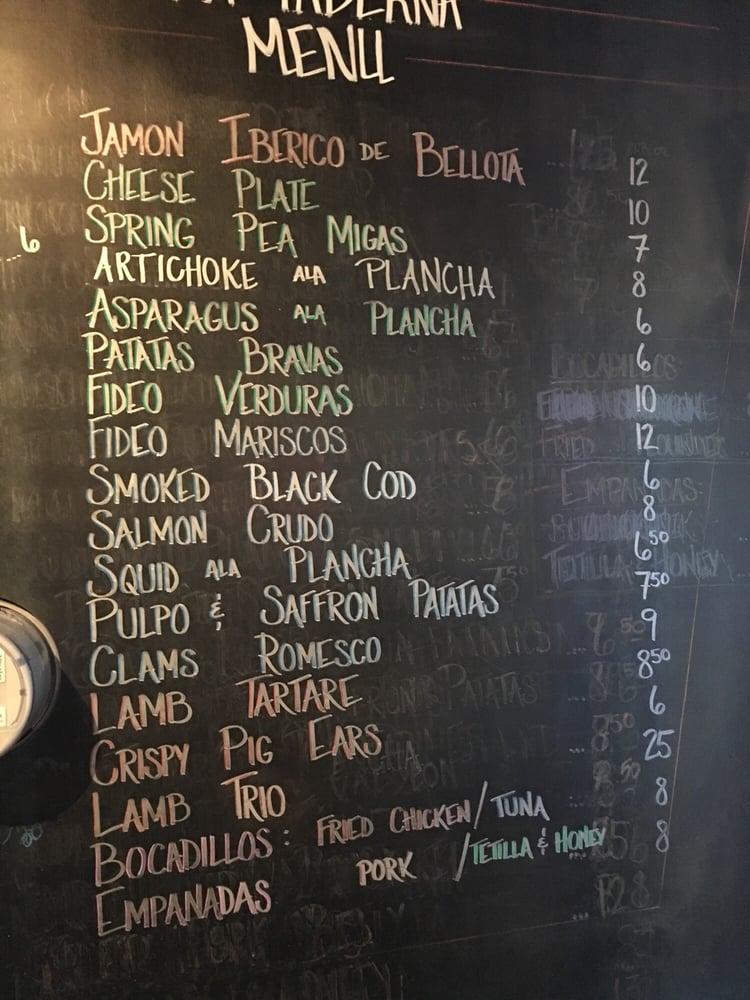 TABERNA
MENU
JAMON IBERICO DE BELLOTA 12
CHEESE PLATE 10
6
SPRING PEA MIGAS 7
ARTICHOKE ALA PLANCHA 8
ASPARAGUS ALA PLANCHA 6
PATATAS BRAVAS 6
FIDEO VERDURAS 10
FIDEO MARISCOS 12
SMOKED BLACK COD 6
SALMON CRUDO 8
SQUID ALA PLANCHA 6⁵⁰
PULPO & SAFFRON PATATAS 7⁵⁰
CLAMS ROMESCO 9
LAMB TARTARE 8⁵⁰
CRISPY PIG EARS 6
LAMB TRIO 25
BOCADILLOS: FRIED CHICKEN/TUNA 8
PORK /TETILLA & HONEY
EMPANADAS 8